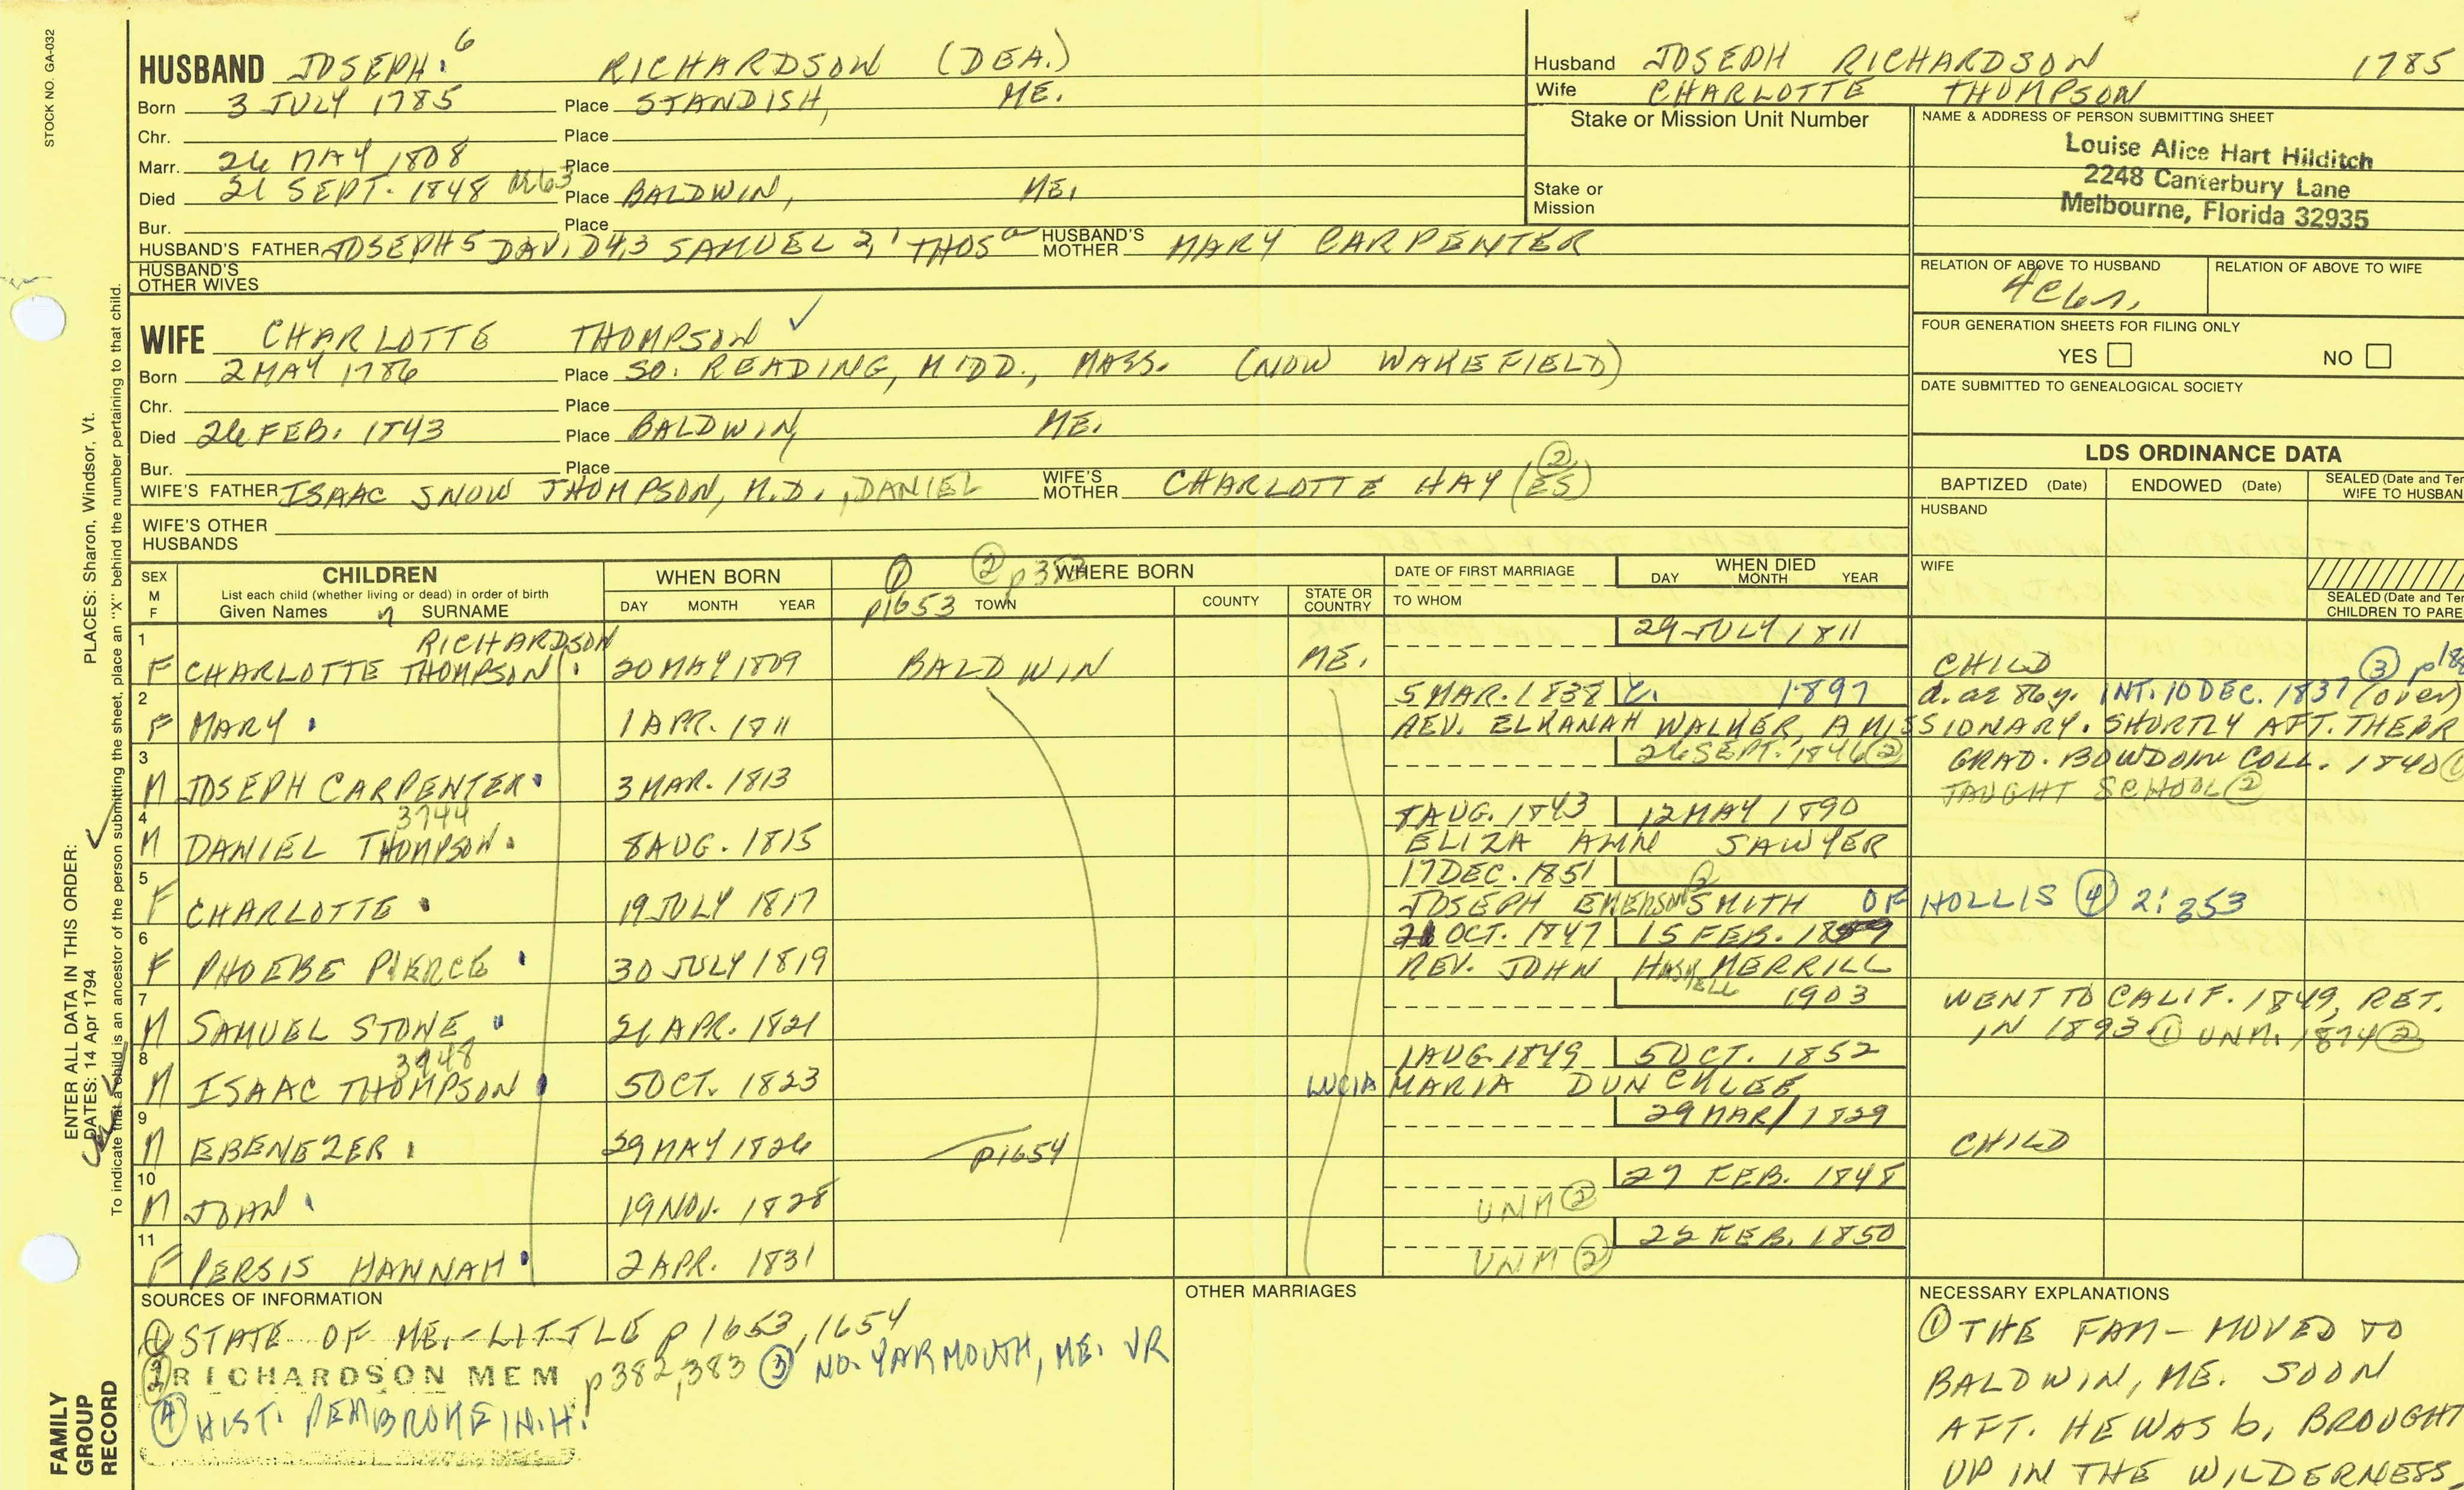 STOCK NO. GA-032
HUSBAND JOSEPH 6 RICHARDSON (DEA.)
Born 3 JULY 1785 Place STANDISH, ME.
Chr. Place
Marr. 26 MAY 1808 Place
Died 21 SEPT. 1848 ae 63 Place BALDWIN, ME.
Bur. Place
HUSBAND'S FATHER JOSEPH 5 DAVID 4,3 SAMUEL 2, 1 THOS HUSBAND'S MOTHER MARY CARPENTER
HUSBAND'S OTHER WIVES
Husband JOSEPH RICHARDSON 1785
Wife CHARLOTTE THOMPSON
Stake or Mission Unit Number
Stake or Mission
NAME & ADDRESS OF PERSON SUBMITTING SHEET
Louise Alice Hart Hilditch
2248 Canterbury Lane
Melbourne, Florida 32935
RELATION OF ABOVE TO HUSBAND RELATION OF ABOVE TO WIFE
FOUR GENERATION SHEETS FOR FILING ONLY
YES NO
DATE SUBMITTED TO GENEALOGICAL SOCIETY
WIFE CHARLOTTE THOMPSON ✓
Born 2 MAY 1786 Place SO. READING, MIDD., MASS. (NOW WAKEFIELD)
Chr. Place
Died 26 FEB. 1843 Place BALDWIN, ME.
Bur. Place
WIFE'S FATHER ISAAC SNOW THOMPSON, M.D., DANIEL WIFE'S MOTHER CHARLOTTE HAY (ES) ②
WIFE'S OTHER HUSBANDS
LDS ORDINANCE DATA
BAPTIZED (Date) ENDOWED (Date) SEALED (Date and Ter WIFE TO HUSBAN
HUSBAND
WIFE
SEALED (Date and Ter CHILDREN TO PARE
SEX M F
CHILDREN
List each child (whether living or dead) in order of birth
Given Names 7 SURNAME
WHEN BORN
DAY MONTH YEAR
① p1653 ② WHERE BORN
TOWN COUNTY STATE OR COUNTRY
DATE OF FIRST MARRIAGE
TO WHOM
WHEN DIED
DAY MONTH YEAR
1 RICHARDSON 29 JULY 1811
F CHARLOTTE THOMPSON 20 MAY 1809 BALDWIN ME. CHILD ③
2 5 MAR. 1838 1897 d. ae 86 y. INT. 10 DEC. 1837 (over)
F MARY 1 APR. 1811 REV. ELKANAH WALKER, A MISSIONARY. SHORTLY AFT. THEPR
3 26 SEPT. 1846 ② GRAD. BOWDOIN COLL. 1840 ①
M JOSEPH CARPENTER 3 MAR. 1813 TAUGHT SCHOOL ②
4 3744 8 AUG. 1843 12 MAY 1890
M DANIEL THOMPSON 8 AUG. 1815 ELIZA ANN SAWYER
5 17 DEC. 1851
F CHARLOTTE 19 JULY 1817 JOSEPH EMERSON SMITH ② OF HOLLIS ④ 2:353
6 OCT. 1847 15 FEB.
F PHOEBE PIERCE 30 JULY 1819 REV. JOHN HASKELL MERRILL
7 1903 WENT TO CALIF. 1849, RET.
M SAMUEL STONE 21 APR. 1821 IN 1893 ① UNM. 1874 ②
8 3748 1 AUG. 1849 5 OCT. 1852
M ISAAC THOMPSON 5 OCT. 1823 LUCIA MARIA DUNCKLEE
9 29 MAR/ 1829
M EBENEZER 29 MAY 1826 p1654 CHILD
10 27 FEB. 1848
M JOHN 19 NOV. 1828 UNM ②
11 22 FEB. 1850
F PERSIS HANNAH 2 APR. 1831 UNM ②
SOURCES OF INFORMATION
① STATE OF ME.-LITTLE p 1653, 1654
② RICHARDSON MEM p382,383 ③ NO. YARMOUTH, ME. VR
④ HIST. PEMBROKE, N.H.
OTHER MARRIAGES
NECESSARY EXPLANATIONS
① THE FAM- MOVED TO
BALDWIN, ME. SOON
AFT. HE WAS b, BROUGHT
UP IN THE WILDERNESS,
FAMILY GROUP RECORD
ENTER ALL DATA IN THIS ORDER:
DATES: 14 Apr 1794
PLACES: Sharon, Windsor, Vt.
To indicate that a child is an ancestor of the person submitting the sheet, place an "X" behind the number pertaining to that child.